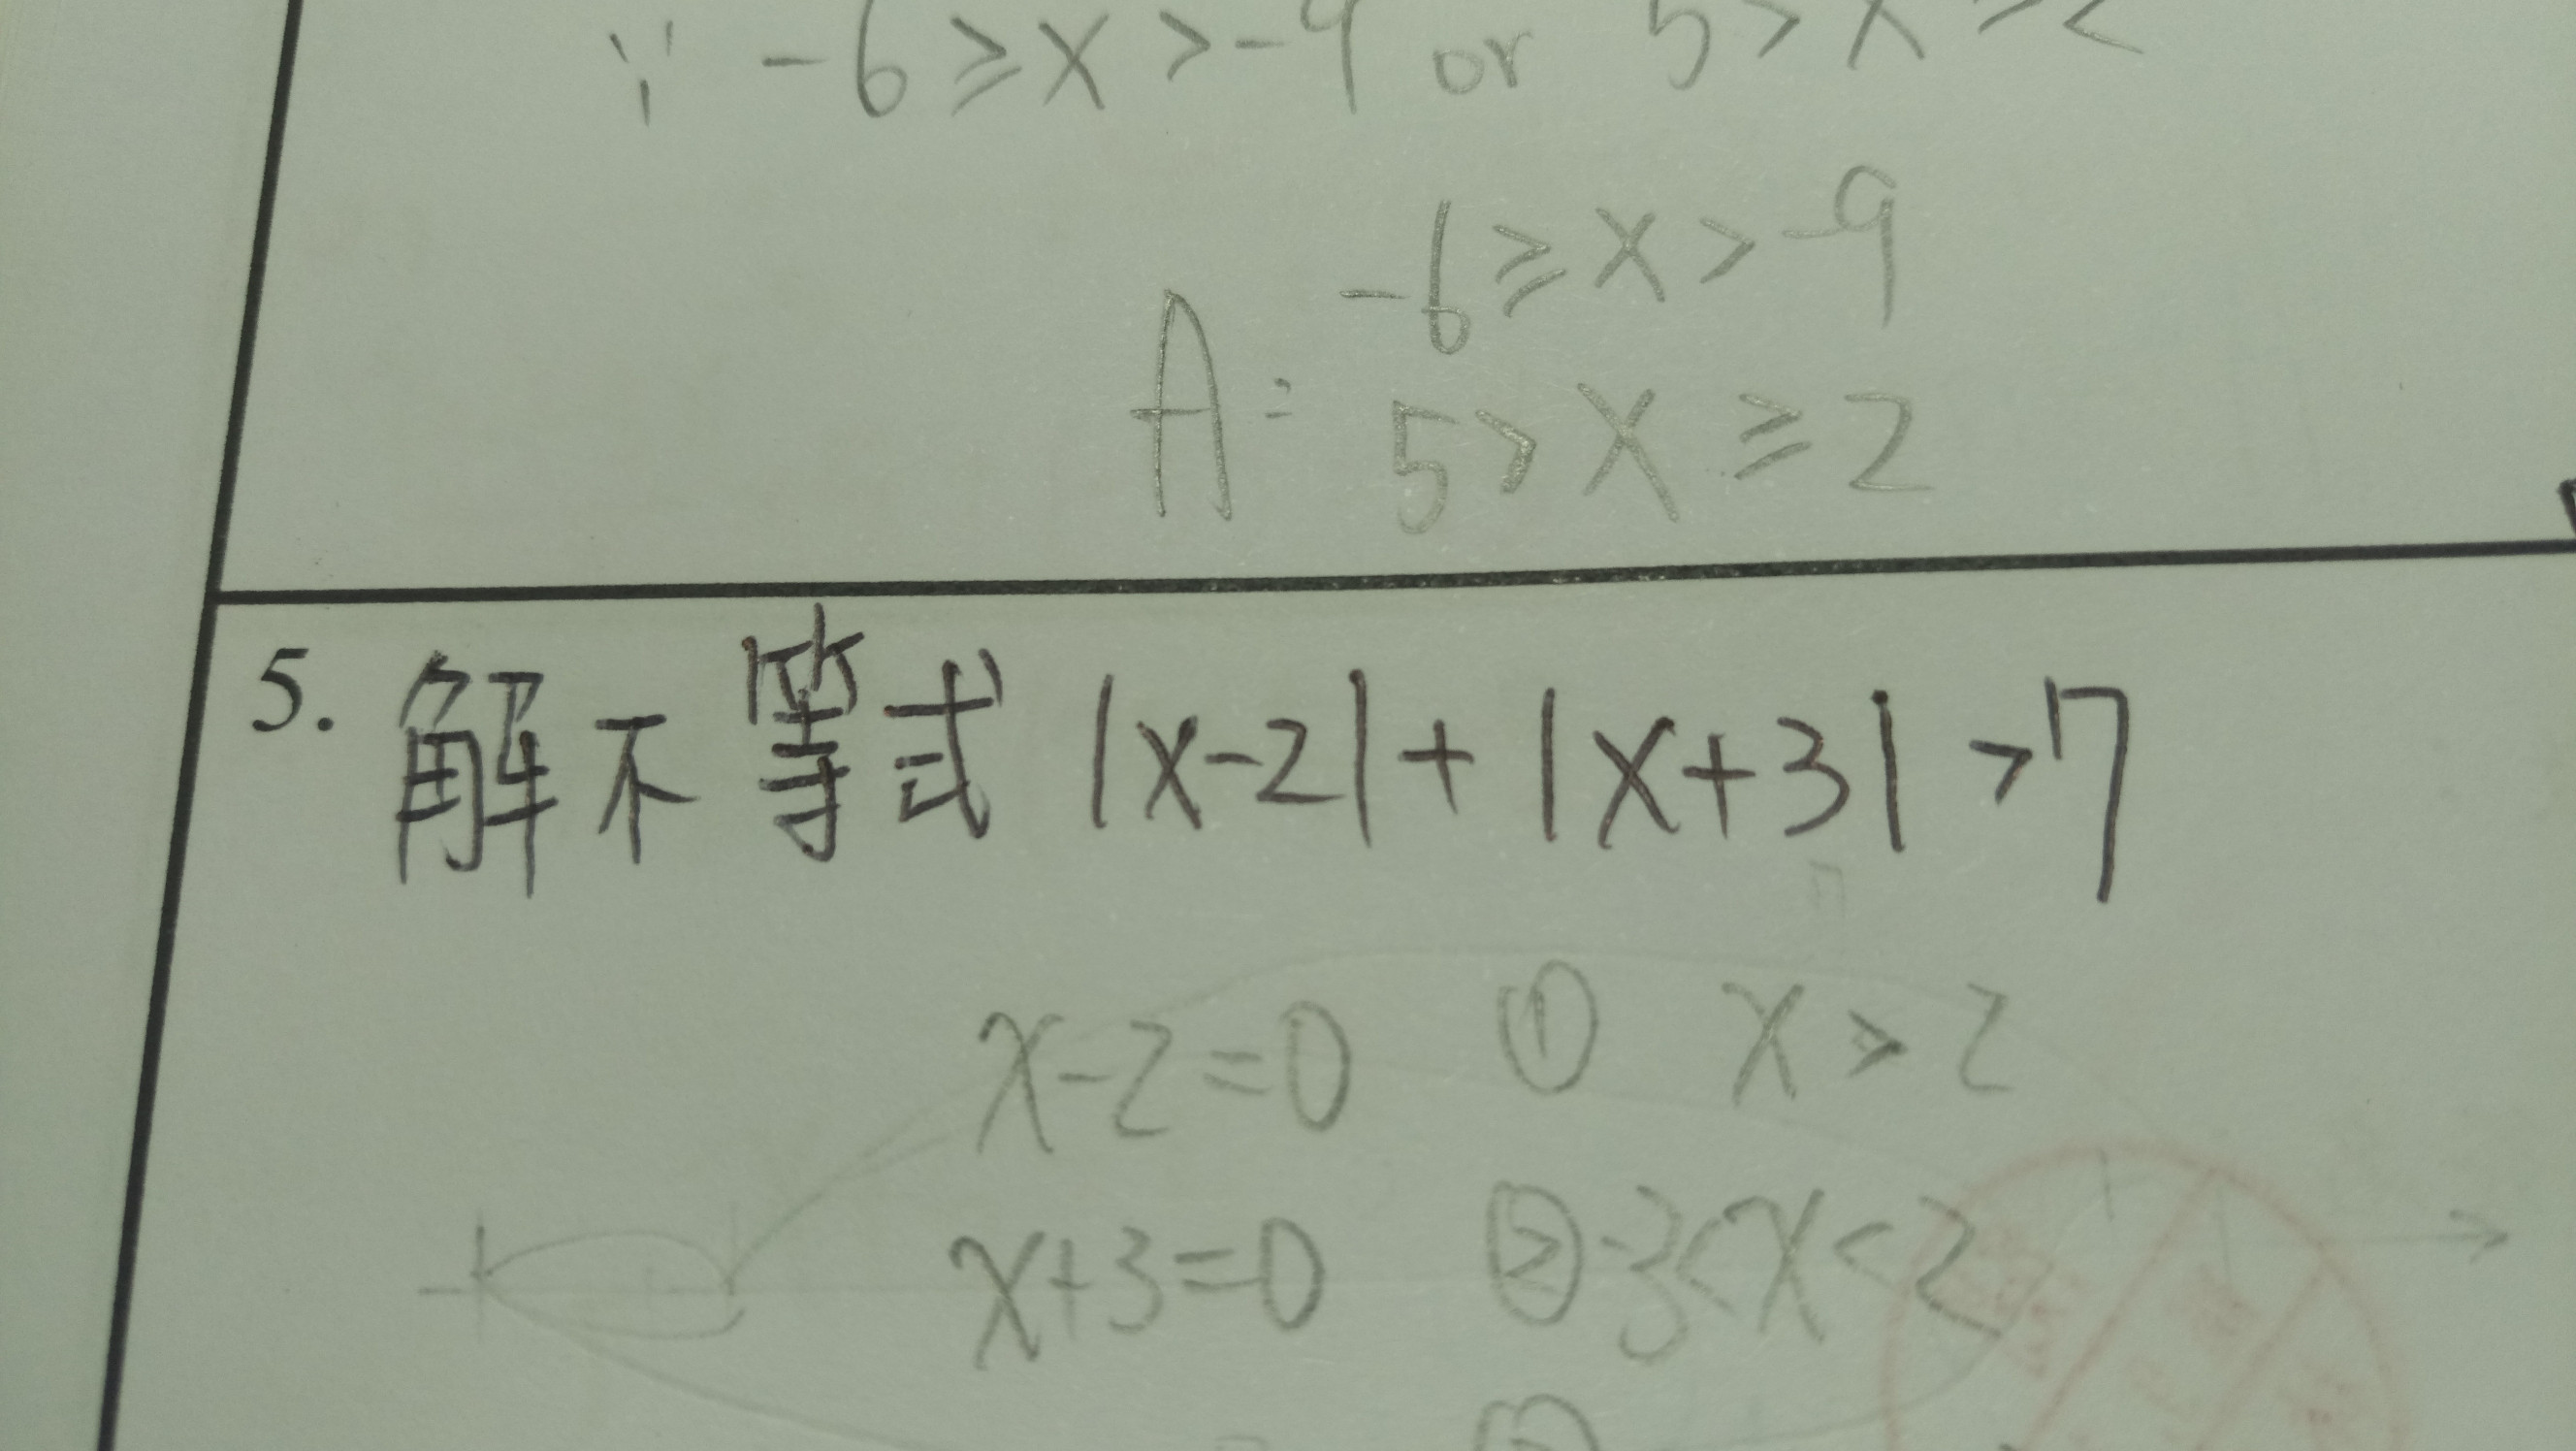 ∵ -6 ≥ x > -9 or 5 > x ≥ 2
A: -6 ≥ x > -9
5 > x ≥ 2
5. 解不等式 |x-2| + |x+3| > 7
x-2=0 ① x > 2
x+3=0 ② -3<x<2